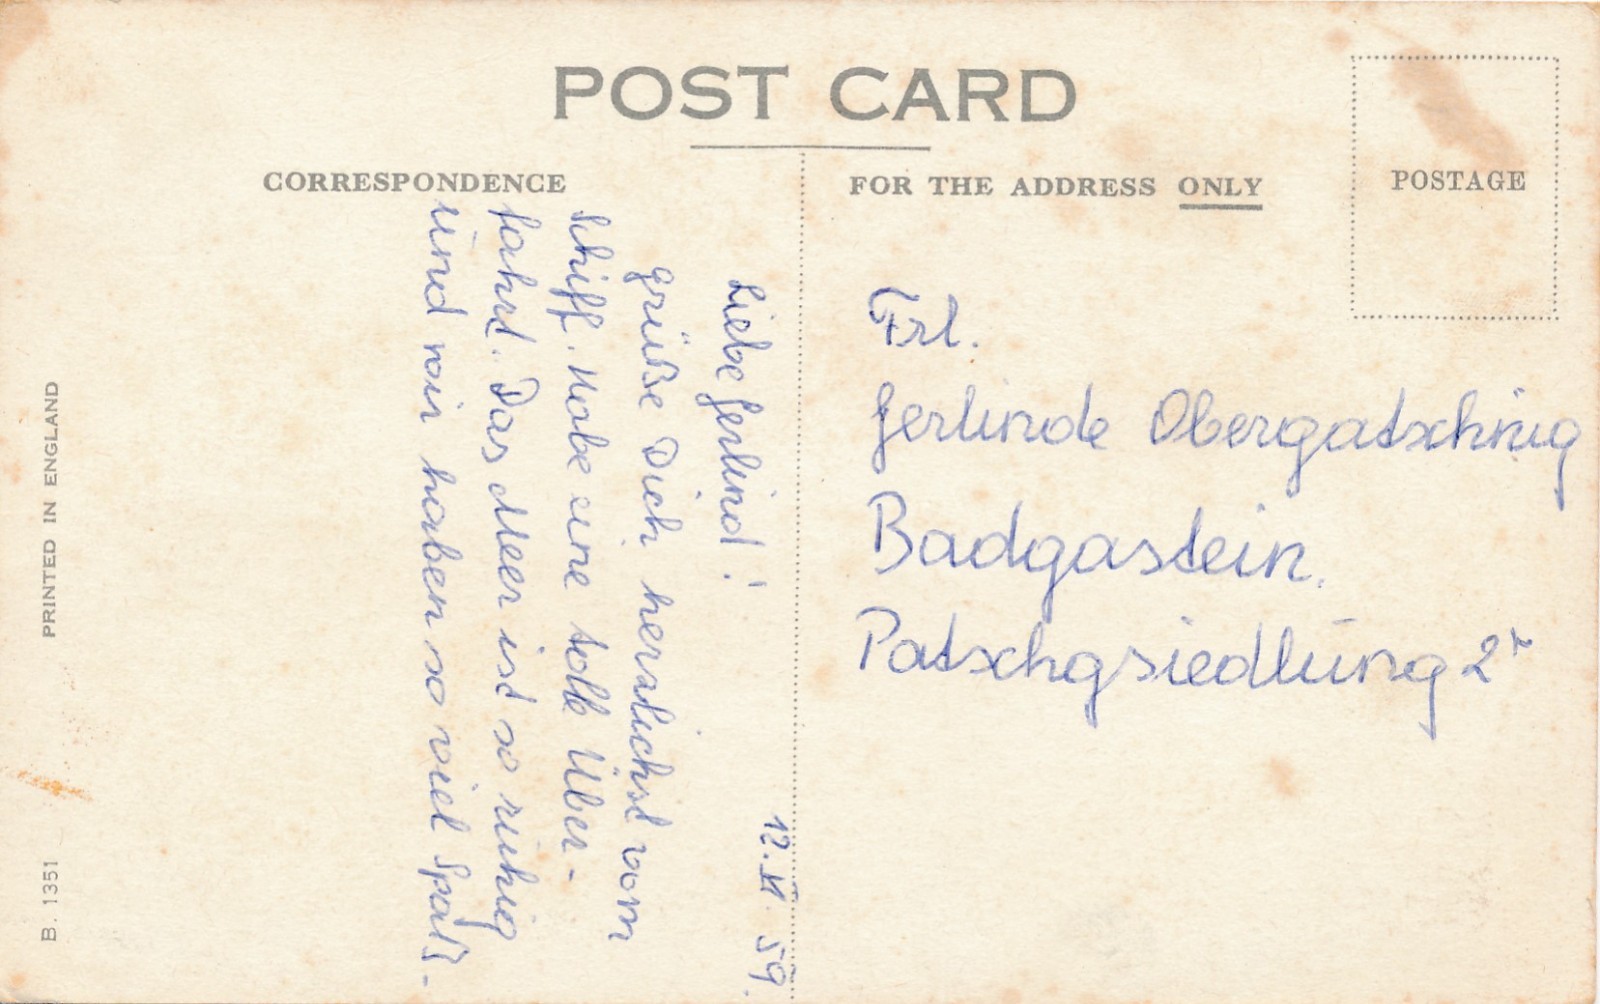 POST CARD
CORRESPONDENCE
FOR THE ADDRESS ONLY
POSTAGE
12. VI. 59.
Liebe Gerlind!
grüße Dich herzlichst vom
Schiff. Habe eine tolle Über-
fahrt. Das Meer ist so ruhig
und wir haben so viel Spaß.
Frl.
Gerlinde Obergatschnig
Badgastein.
Patschgsiedlung 2
PRINTED IN ENGLAND
B. 1351